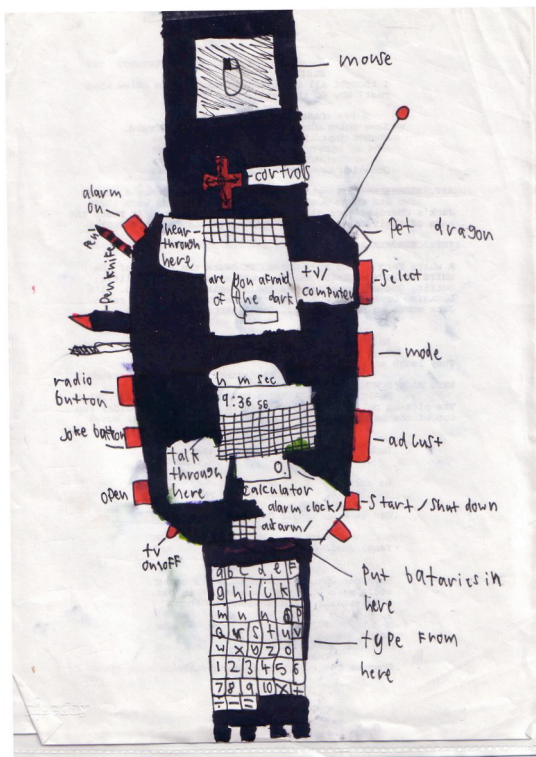 mouse
controls
alarm
on
pen
penknife
hear
through
here
pet dragon
tv/
computer
select
are you afraid
of the dark
mode
radio
button
h m sec
9:36 56
joke button
adlust
talk
through
here
0.
calculator
open
alarm clock/
alarm/
start/shut down
tv
on/off
put bataries in
here
type from
here
a b c d e F
g h i c k l
m n n o p
q r s t u v
w x y z 0
1 2 3 4 5 6
7 8 9 10 x +
÷ - =